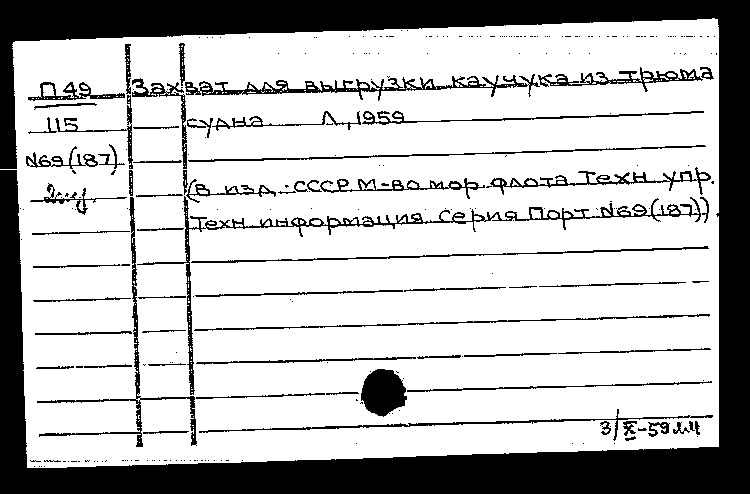 П49 Захват для выгрузки каучука из трюма
115 судна. Л., 1959
N69(187)
(В изд.: СССР М-во мор. флота. Техн упр.
Техн информация. Серия Порт N69(187)).
3/X-59